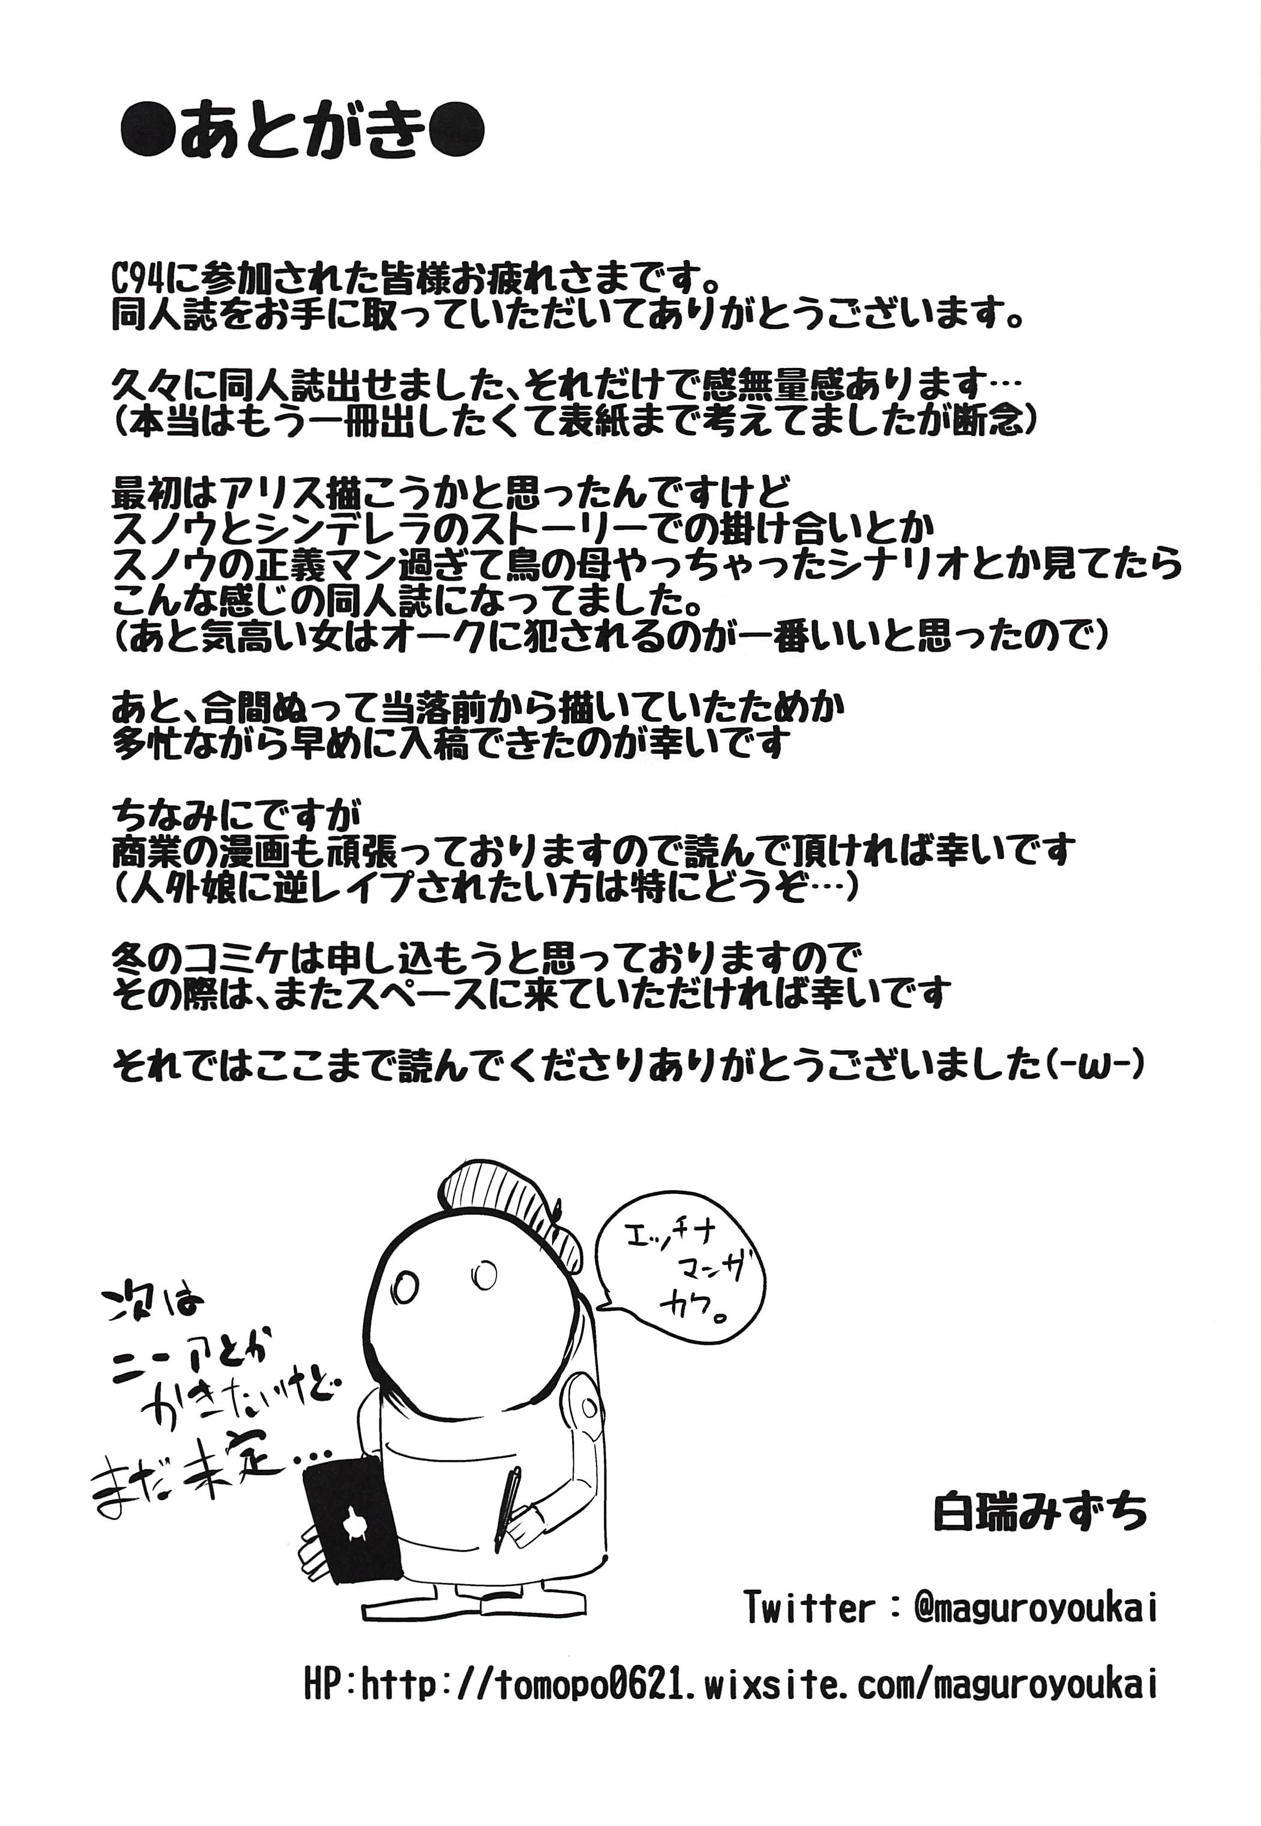 ●あとがき●
C94に参加された皆様お疲れさまです。
同人誌をお手に取っていただいてありがとうございます。
久々に同人誌出せました、それだけで感無量感あります…
(本当はもう一冊出したくて表紙まで考えてましたが断念)
最初はアリス描こうかと思ったんですけど
スノウとシンデレラのストーリーでの掛け合いとか
スノウの正義マン過ぎて鳥の母やっちゃったシナリオとか見てたら
こんな感じの同人誌になってました。
(あと気高い女はオークに犯されるのが一番いいと思ったので)
あと、合間ぬって当落前から描いていたためか
多忙ながら早めに入稿できたのが幸いです
ちなみにですが
商業の漫画も頑張っておりますので読んで頂ければ幸いです
(人外娘に逆レイプされたい方は特にどうぞ…)
冬のコミケは申し込もうと思っておりますので
その際は、またスペースに来ていただければ幸いです
それではここまで読んでくださりありがとうございました(-ω-)
エッチナ
マンガ
カク。
次は
ニーアとか
かきたいけど
まだ未定...
白瑞みずち
Twitter：@maguroyoukai
HP:http://tomopo0621.wixsite.com/maguroyoukai